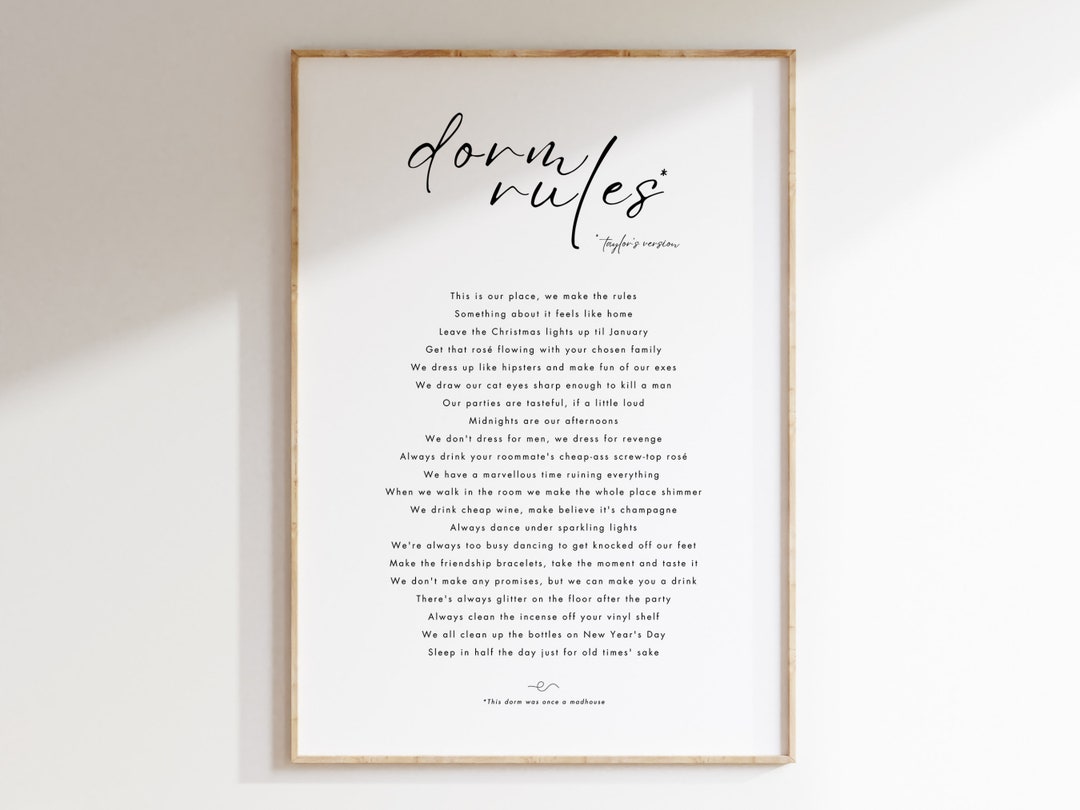 dorm
rules*
*taylor's version
This is our place, we make the rules
Something about it feels like home
Leave the Christmas lights up til January
Get that rosé flowing with your chosen family
We dress up like hipsters and make fun of our exes
We draw our cat eyes sharp enough to kill a man
Our parties are tasteful, if a little loud
Midnights are our afternoons
We don't dress for men, we dress for revenge
Always drink your roommate's cheap-ass screw-top rosé
We have a marvellous time ruining everything
When we walk in the room we make the whole place shimmer
We drink cheap wine, make believe it's champagne
Always dance under sparkling lights
We're always too busy dancing to get knocked off our feet
Make the friendship bracelets, take the moment and taste it
We don't make any promises, but we can make you a drink
There's always glitter on the floor after the party
Always clean the incense off your vinyl shelf
We all clean up the bottles on New Year's Day
Sleep in half the day just for old times' sake
*This dorm was once a madhouse